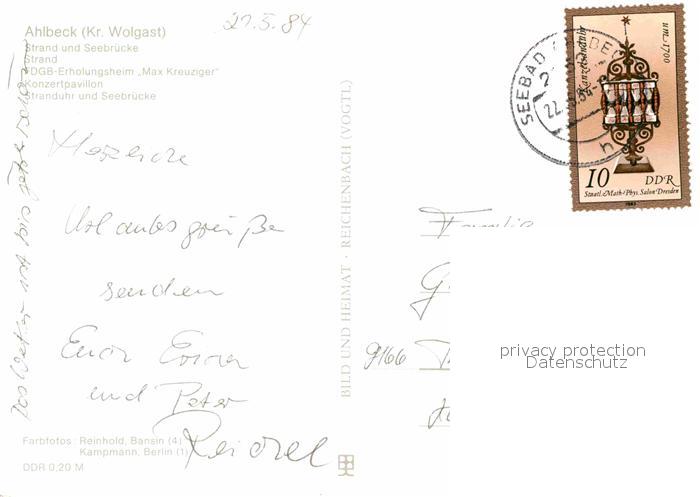 Ahlbeck (Kr. Wolgast)
Strand und Seebrücke
Strand
FDGB-Erholungsheim „Max Kreuziger"
Konzertpavillon
Stranduhr und Seebrücke
21.5.84
Herzliche
Urlaubsgrüße
senden
Euch Erna
und Peter
Reichel
das Wetter ist bis jetzt
Farbfotos: Reinhold, Bansin (4)
Kampmann, Berlin (1)
DDR 0,20 M
BILD UND HEIMAT · REICHENBACH (VOGTL)
SEEBAD
Kanzelsanduhr
um 1700
10 DDR
Staatl. Math.-Phys. Salon Dresden
1983
Familie
G
9166
privacy protection
Datenschutz